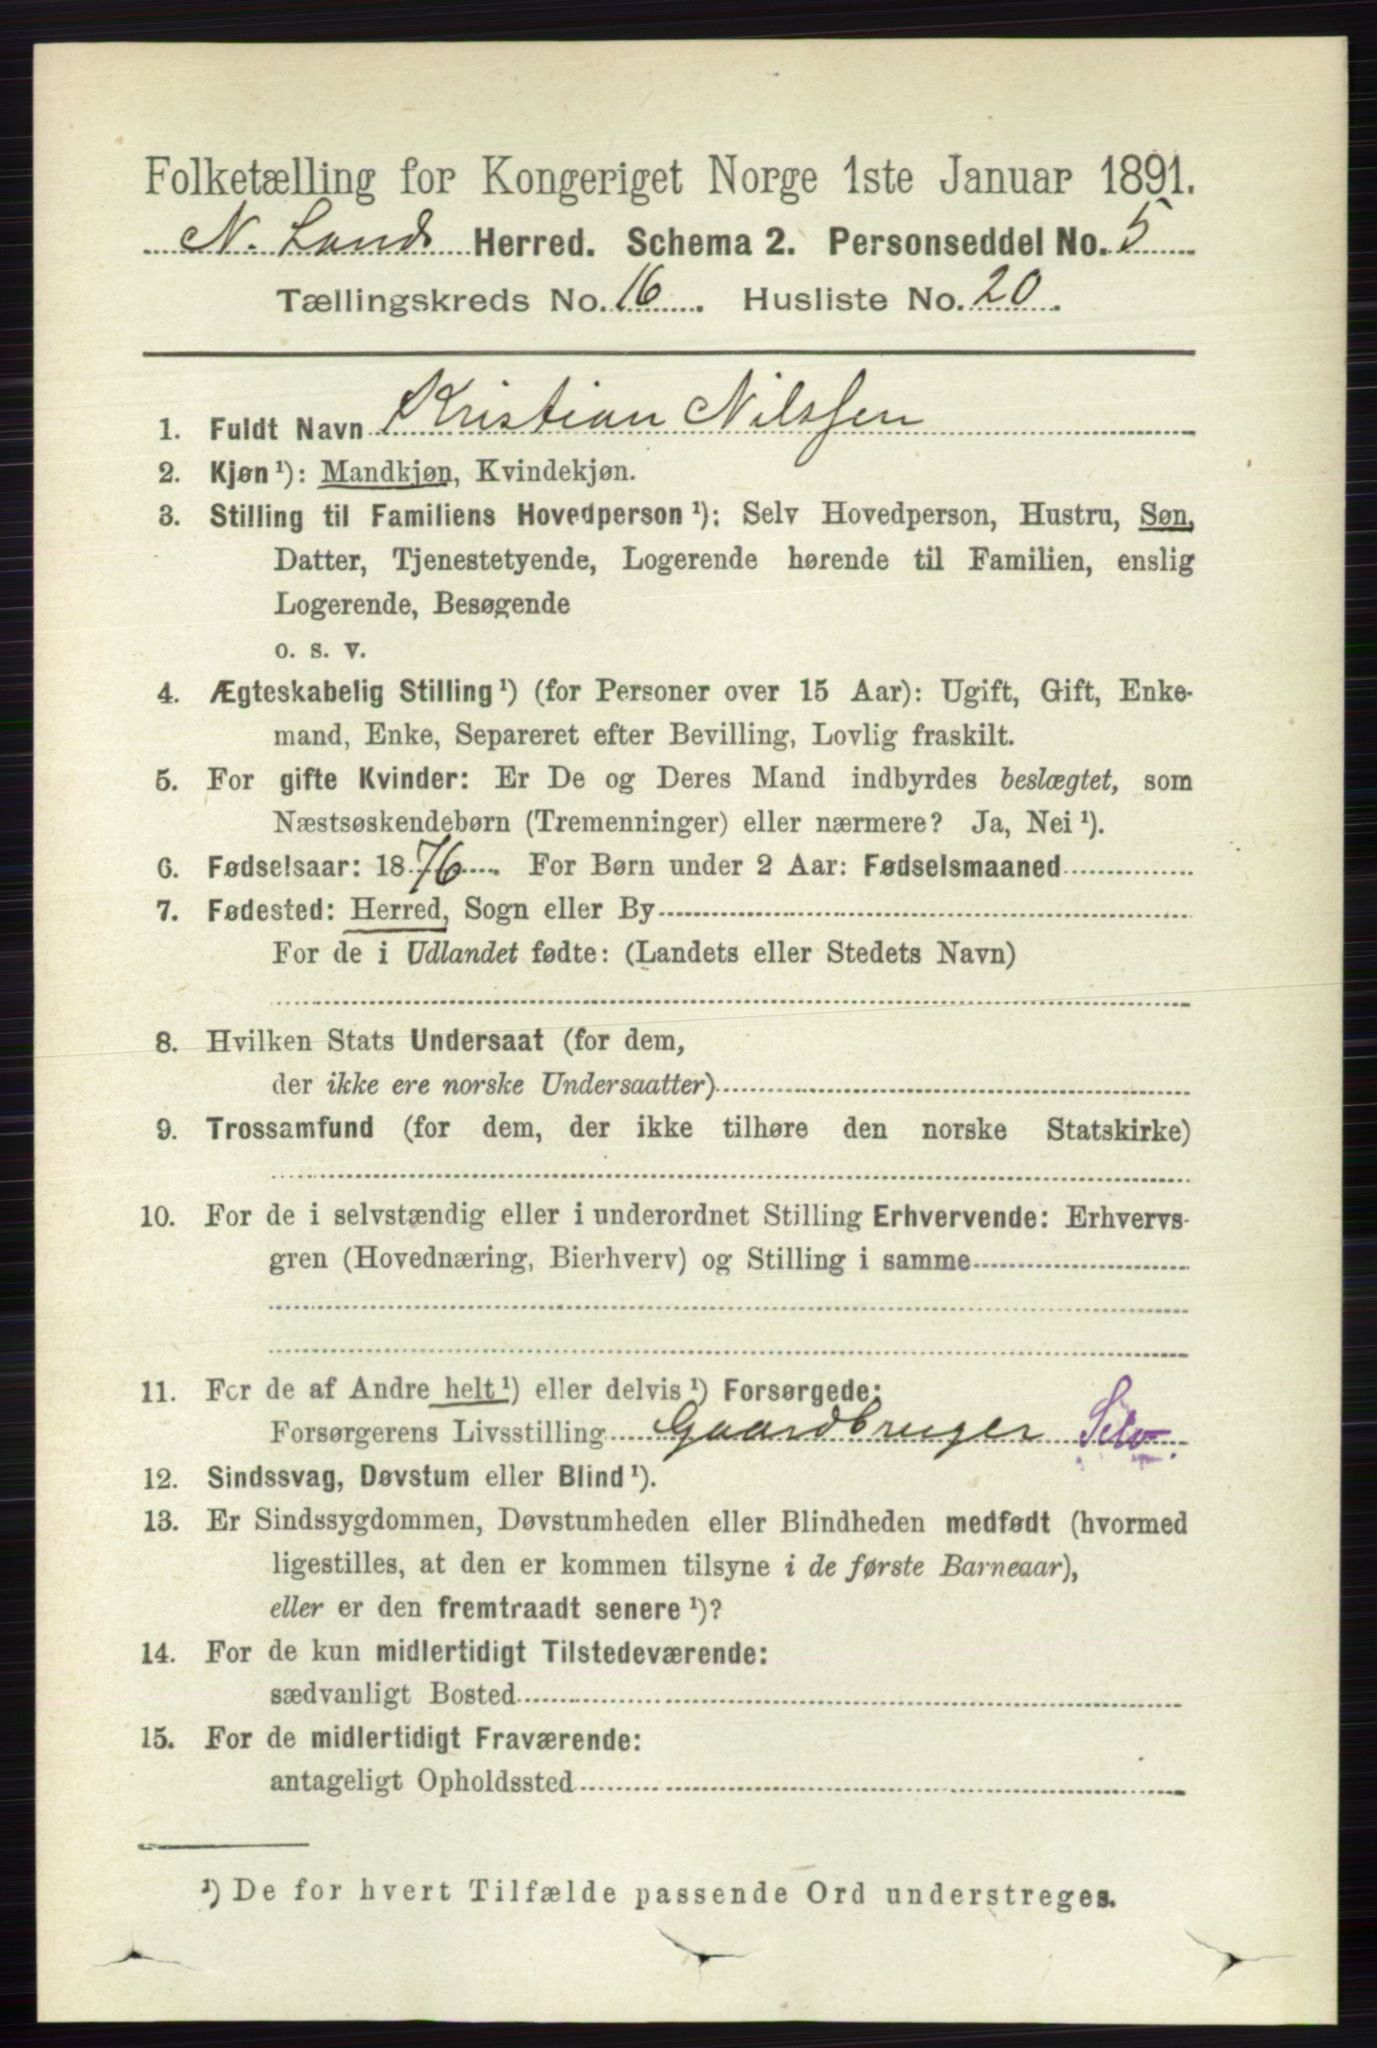 Folketælling for Kongeriget Norge 1ste Januar 1891.
N. Lands Herred. Schema 2. Personseddel No. 5
Tællingskreds No. 16. Husliste No. 20.
1. Fuldt Navn Kristian Nilssen
2. Kjøn ¹): Mandkjøn, Kvindekjøn.
3. Stilling til Familiens Hovedperson ¹): Selv Hovedperson, Hustru, Søn,
Datter, Tjenestetyende, Logerende hørende til Familien, enslig
Logerende, Besøgende
o. s. v.
4. Ægteskabelig Stilling ¹) (for Personer over 15 Aar): Ugift, Gift, Enke-
mand, Enke, Separeret efter Bevilling, Lovlig fraskilt.
5. For gifte Kvinder: Er De og Deres Mand indbyrdes beslægtet, som
Næstsøskendebørn (Tremenninger) eller nærmere? Ja, Nei ¹).
6. Fødselsaar: 1876. For Børn under 2 Aar: Fødselsmaaned
7. Fødested: Herred, Sogn eller By
For de i Udlandet fødte: (Landets eller Stedets Navn)
8. Hvilken Stats Undersaat (for dem,
der ikke ere norske Undersaatter)
9. Trossamfund (for dem, der ikke tilhøre den norske Statskirke)
10. For de i selvstændig eller i underordnet Stilling Erhvervende: Erhvervs-
gren (Hovednæring, Bierhverv) og Stilling i samme
11. For de af Andre helt ¹) eller delvis ¹) Forsørgede:
Forsørgerens Livsstilling Gaardbruger Selv
12. Sindssvag, Døvstum eller Blind ¹).
13. Er Sindssygdommen, Døvstumheden eller Blindheden medfødt (hvormed
ligestilles, at den er kommen tilsyne i de første Barneaar),
eller er den fremtraadt senere ¹)?
14. For de kun midlertidigt Tilstedeværende:
sædvanligt Bosted
15. For de midlertidigt Fraværende:
antageligt Opholdssted
¹) De for hvert Tilfælde passende Ord understreges.